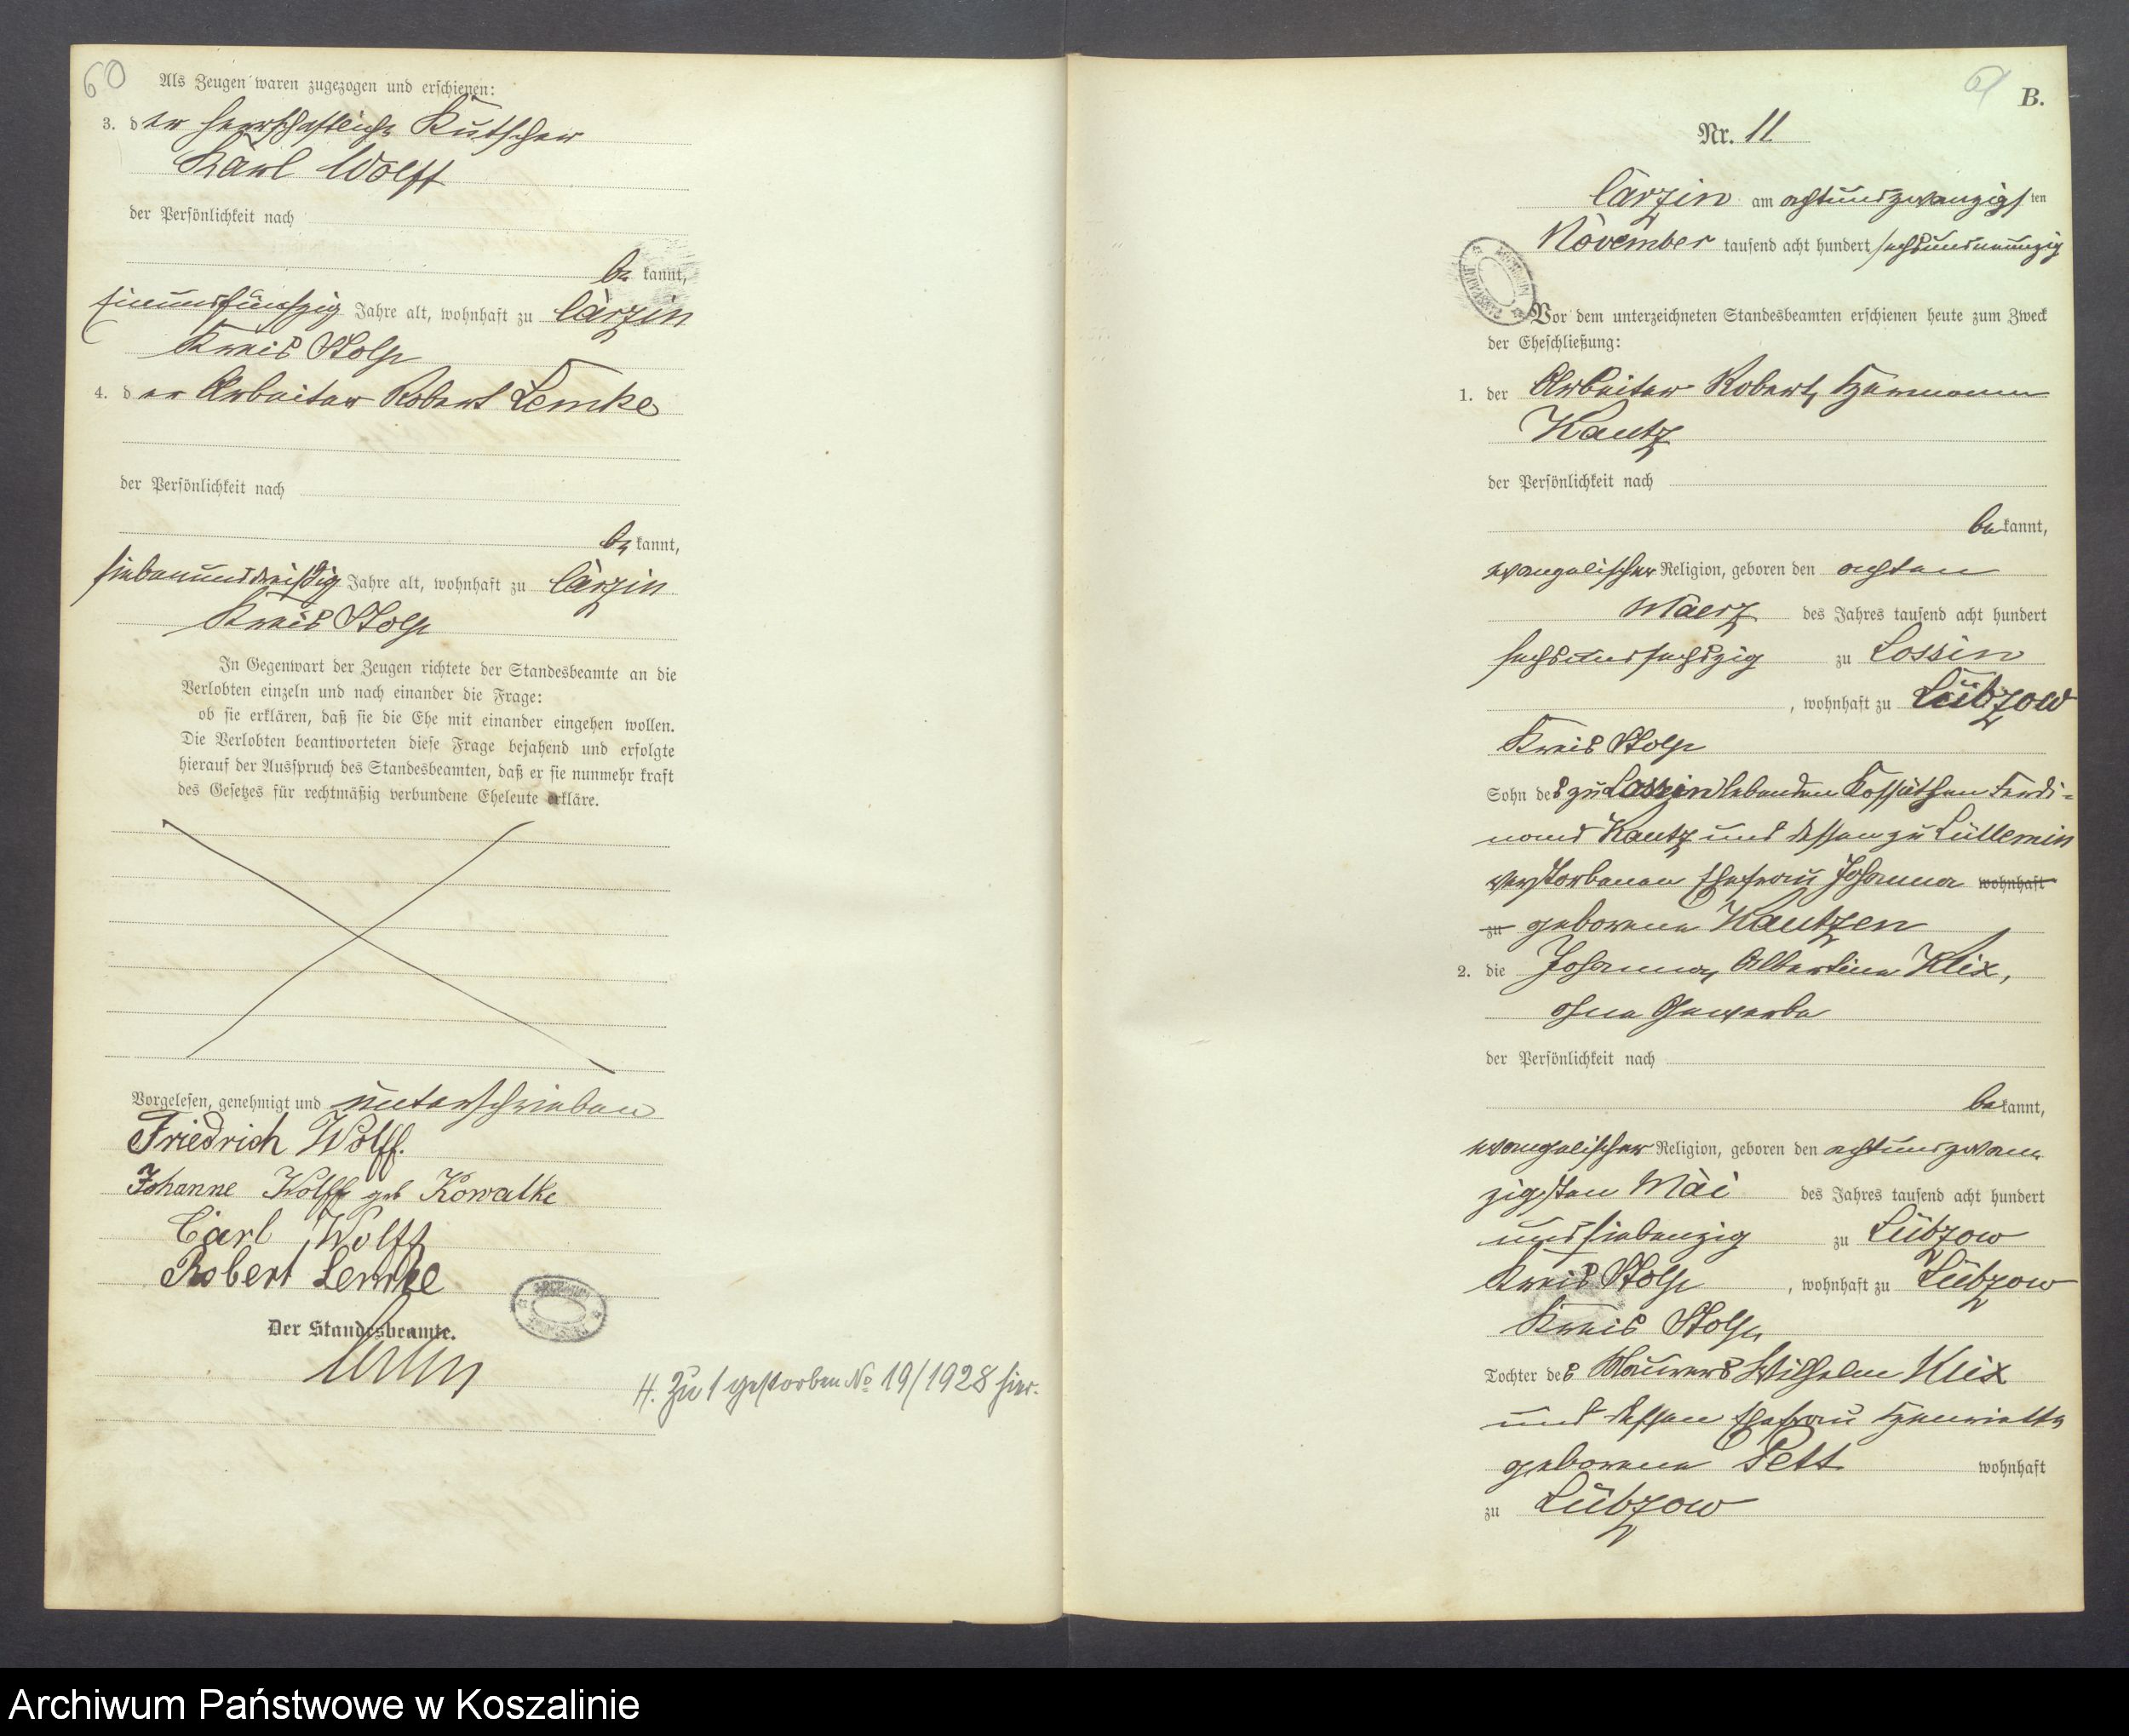 60
Als Zeugen waren zugezogen und erschienen:
3. der herrschaftliche Kutscher
Karl Wolff
der Persönlichkeit nach
be kannt,
einundfünfzig Jahre alt, wohnhaft zu Carzin
Kreis Stolp
4. der Arbeiter Robert Lemke
der Persönlichkeit nach
be kannt,
siebenunddreißig Jahre alt, wohnhaft zu Carzin
Kreis Stolp
In Gegenwart der Zeugen richtete der Standesbeamte an die
Verlobten einzeln und nach einander die Frage:
ob sie erklären, daß sie die Ehe mit einander eingehen wollen.
Die Verlobten beantworteten diese Frage bejahend und erfolgte
hierauf der Ausspruch des Standesbeamten, daß er sie nunmehr kraft
des Gesetzes für rechtmäßig verbundene Eheleute erkläre.
Vorgelesen, genehmigt und unterschrieben
Friedrich Wolff.
Johanne Wolff geb Kowalke
Carl Wolff
Robert Lemke
Der Standesbeamte.
H. Zu 1 gestorben No 19/1928 hier.
61
B.
Nr. 11
Carzin am achtundzwanzigsten
November tausend acht hundert sechsundneunzig
Vor dem unterzeichneten Standesbeamten erschienen heute zum Zweck
der Eheschließung:
1. der Arbeiter Robert, Hermann
Kautz
der Persönlichkeit nach
be kannt,
evangelischer Religion, geboren den achten
Maerz des Jahres tausend acht hundert
sechsundsechszig zu Lossin
, wohnhaft zu Lübzow
Kreis Stolp
Sohn des zu Lossin lebenden Kossäthen Ferdi=
nand Kautz und dessen zu Lüllemin
verstorbenen Ehefrau Johanna wohnhaft
zu geborene Kautzen
2. die Johanna, Albertine Klix,
ohne Gewerbe
der Persönlichkeit nach
be kannt,
evangelischer Religion, geboren den achtundzwan
zigsten Mai des Jahres tausend acht hundert
undsiebenzig zu Lübzow
Kreis Stolp , wohnhaft zu Lübzow
Kreis Stolp
Tochter des Maurers Wilhelm Klix
und dessen Ehefrau Henriette
geborene Pett wohnhaft
zu Lübzow
Archiwum Państwowe w Koszalinie